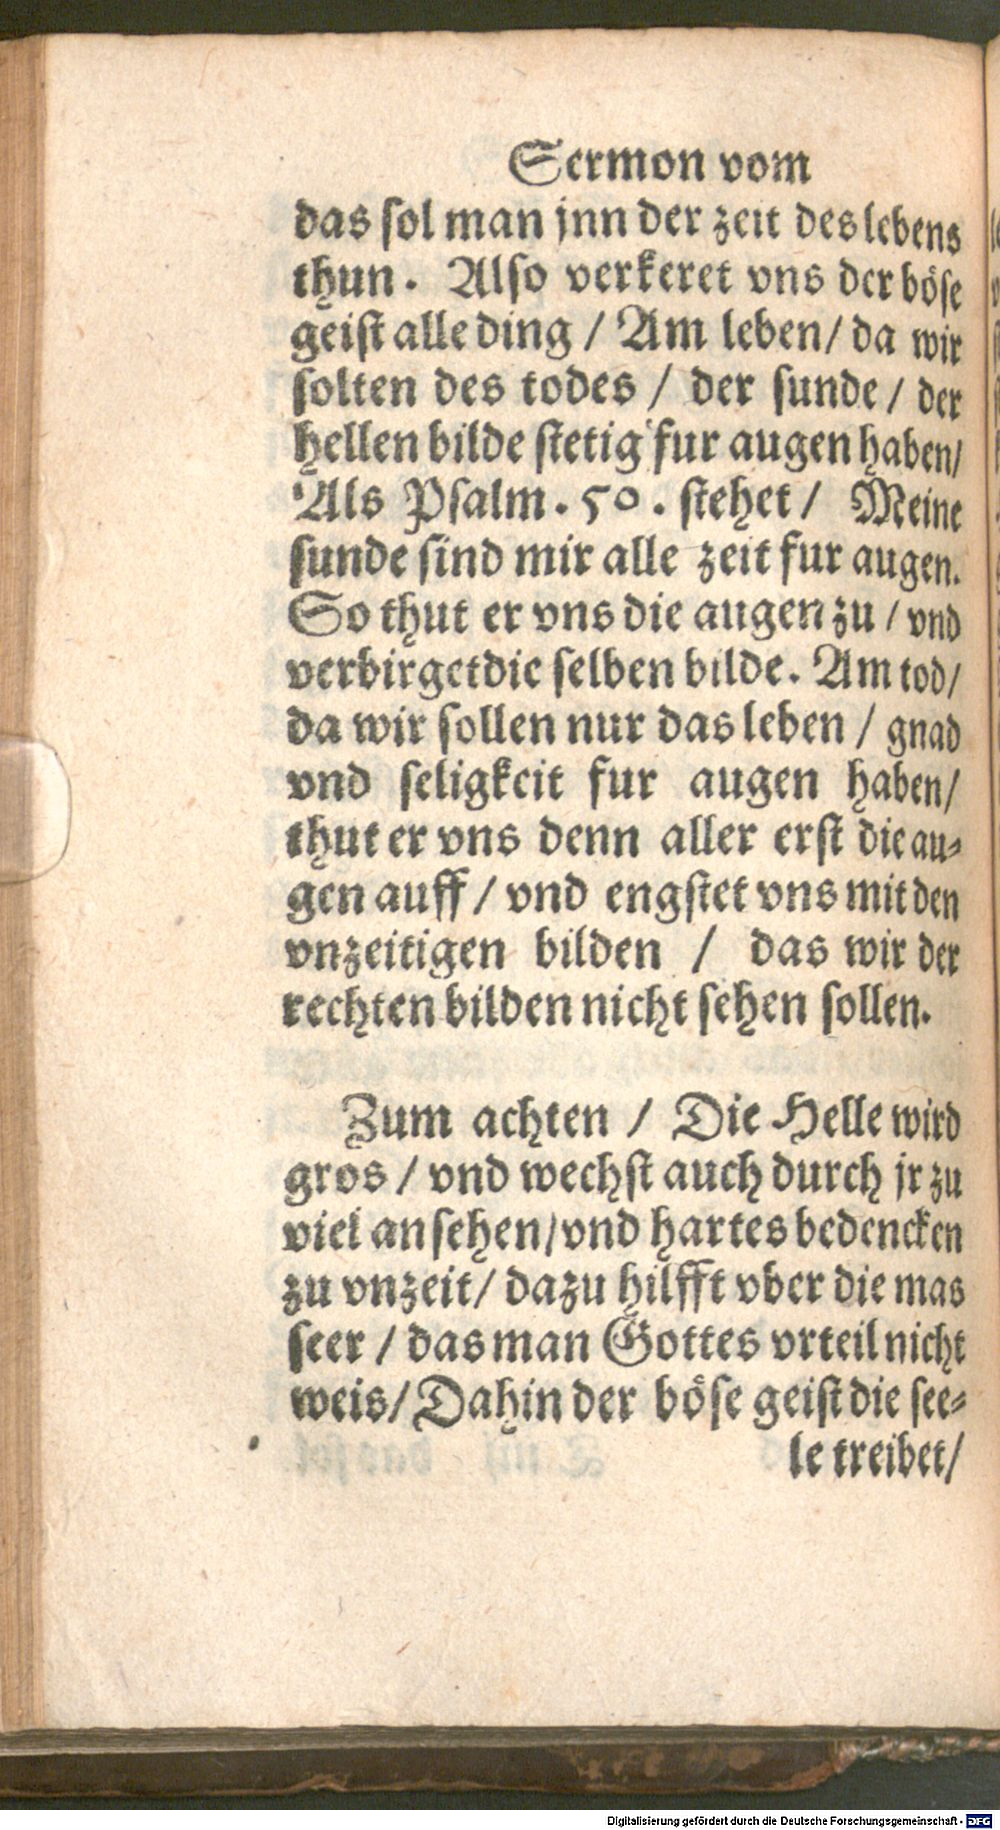 Sermon vom
das sol man jnn der zeit des lebens
thun. Also verkeret vns der böse
geist alle ding / Am leben/ da wir
solten des todes / der sunde / der
hellen bilde stetig fur augen haben/
Als Psalm. 50. stehet / Meine
sunde sind mir alle zeit fur augen.
So thut er vns die augen zu / vnd
verbirget die selben bilde. Am tod/
da wir sollen nur das leben / gnad
vnd seligkeit fur augen haben/
thut er vns denn aller erst die au-
gen auff / vnd engstet vns mit den
vnzeitigen bilden / das wir der
rechten bilden nicht sehen sollen.
Zum achten / Die Helle wird
gros / vnd wechst auch durch jr zu
viel an sehen/vnd hartes bedencken
zu vnzeit/ dazu hilfft vber die mas
seer / das man Gottes vrteil nicht
weis/ Dahin der böse geist die see-
le treibet/
Digitalisierung gefördert durch die Deutsche Forschungsgemeinschaft - DFG